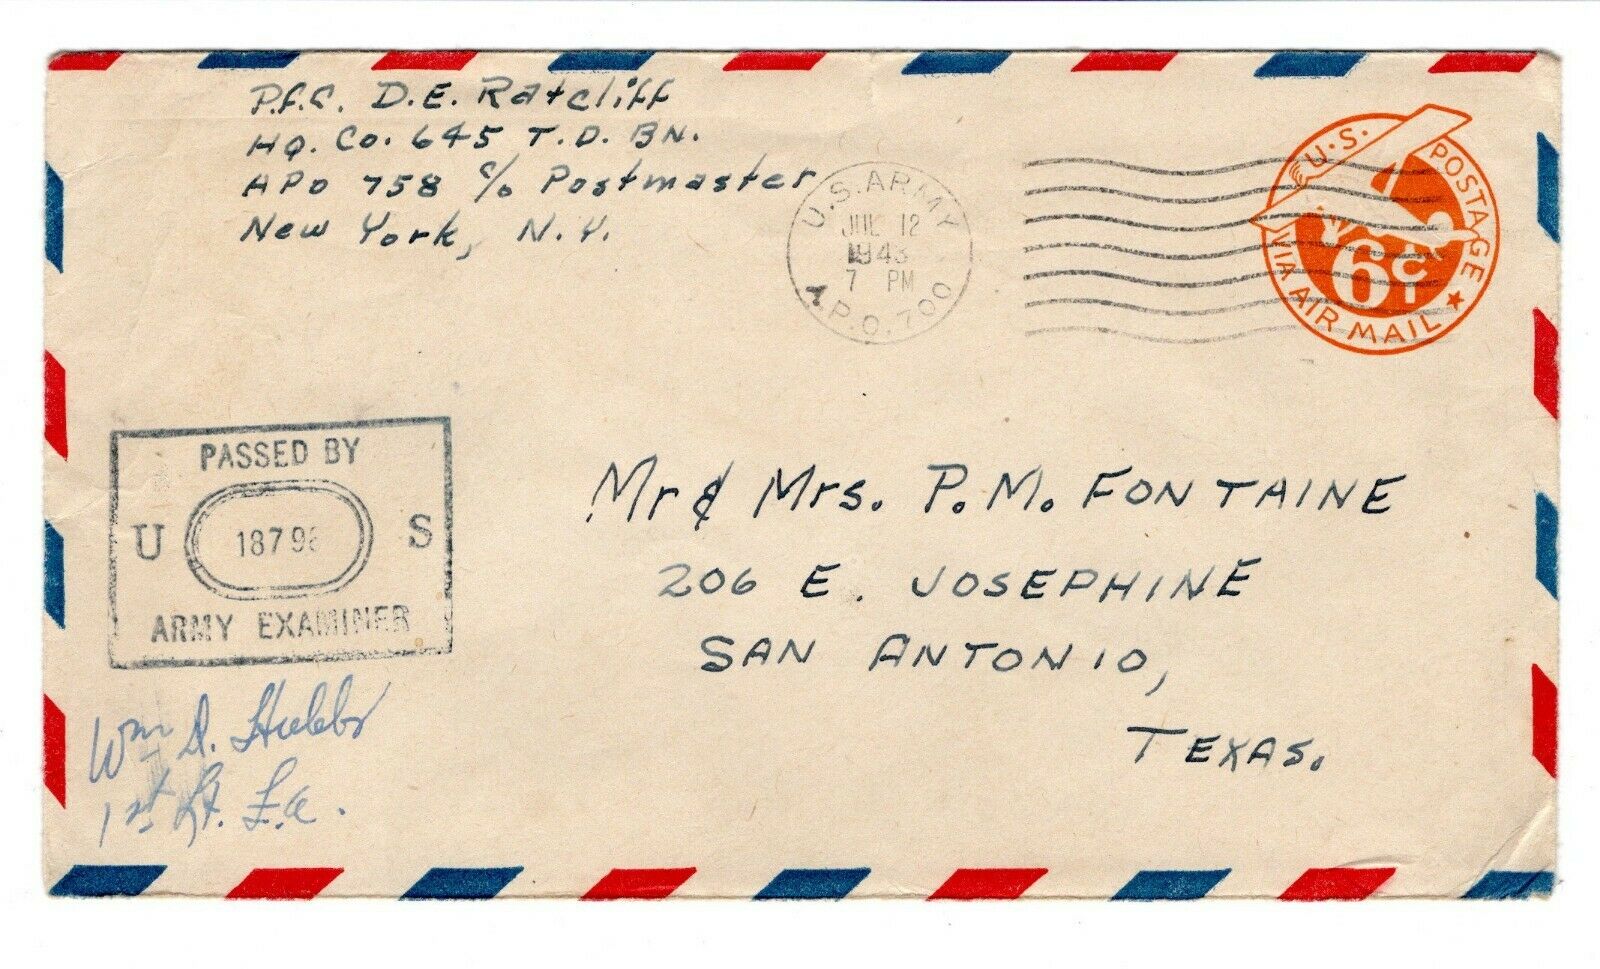 P.F.C. D.E. Ratcliff
HQ. Co. 645 T.D. BN.
APO 758 c/o Postmaster
New York, N.Y.
U.S. ARMY
JUL 12
1943
7 PM
A.P.O. 700
U.S. POSTAGE
6¢
VIA AIR MAIL
PASSED BY
U S
18796
ARMY EXAMINER
Wm D. Hubbs
1st Lt. F.a.
Mr & Mrs. P.M. FONTAINE
206 E. JOSEPHINE
SAN ANTONIO,
TEXAS.